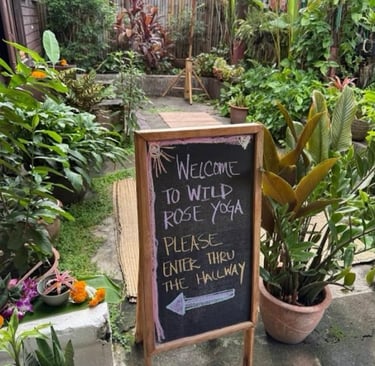 WELCOME
TO WILD
ROSE YOGA
PLEASE
ENTER THRU
THE HALLWAY